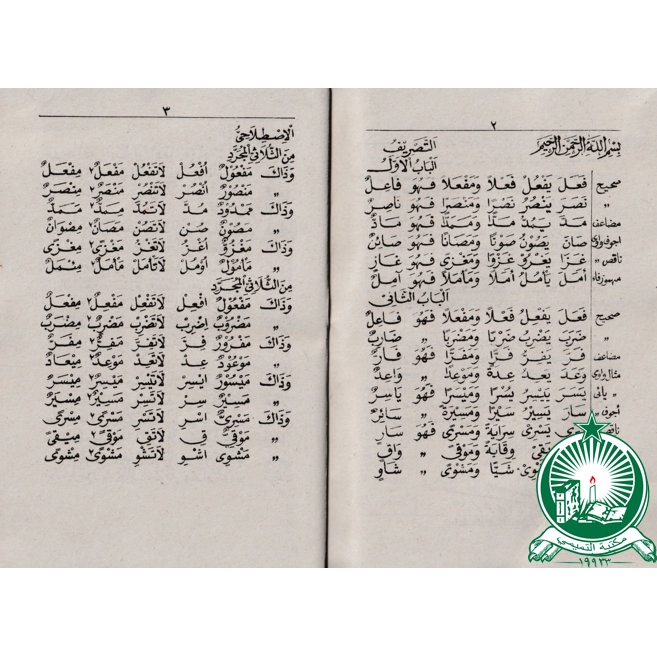 ٢
بِسْمِ اللهِ الرَّحْمٰنِ الرَّحِيْمِ
التَّصْرِيْفُ
اَلْبَابُ الْاَوَّلُ
صحيح فَعَلَ يَفْعُلُ فَعْلًا وَمَفْعَلًا فَهُوَ فَاعِلٌ
〃 نَصَرَ يَنْصُرُ نَصْرًا وَمَنْصَرًا فَهُوَ نَاصِرٌ
مضاعف مَدَّ يَمُدُّ مَدًّا وَمَمَدًّا فَهُوَ مَادٌّ
اجوف واوى صَانَ يَصُوْنُ صَوْنًا وَمَصَانًا فَهُوَ صَائِنٌ
ناقص 〃 غَزَا يَغْزُوْ غَزْوًا وَمَغْزًى فَهُوَ غَازٍ
مهموز فاء اَمَلَ يَأْمُلُ اَمَلًا وَمَأْمَلًا فَهُوَ آمِلٌ
اَلْبَابُ الثَّانِى
صحيح فَعَلَ يَفْعِلُ فَعْلًا وَمَفْعَلًا فَهُوَ فَاعِلٌ
〃 ضَرَبَ يَضْرِبُ ضَرْبًا وَمَضْرَبًا 〃 ضَارِبٌ
مضاعف فَرَّ يَفِرُّ فَرًّا وَمَفَرًّا فَهُوَ فَارٌّ
مثال واوى وَعَدَ يَعِدُ عِدَةً وَمَوْعِدًا 〃 وَاعِدٌ
〃 يائى يَسَرَ يَيْسِرُ يُسْرًا وَمَيْسِرًا فَهُوَ يَاسِرٌ
اجوف 〃 سَارَ يَسِيْرُ سَيْرًا وَمَسِيْرَةً 〃 سَائِرٌ
ناقص يَسْرِى سِرَايَةً وَمَسْرًى فَهُوَ سَارٍ
يَقِىْ وِقَايَةً وَمَوْقًى 〃 وَاقٍ
شَيًّا وَمَشْوًى 〃 شَاوٍ
٣
الْاِصْطِلَاحِىُّ
مِنَ الثُّلَاثِىِّ الْمُجَرَّدِ
وَذَاكَ مَفْعُوْلٌ اُفْعُلْ لَاتَفْعُلْ مَفْعَلٌ ٢ مِفْعَلٌ
〃 مَنْصُوْرٌ اُنْصُرْ لَاتَنْصُرْ مَنْصَرٌ ٢ مِنْصَرٌ
وَذَاكَ مَمْدُوْدٌ مُدَّ لَاتَمُدَّ مَمَدٌّ ٢ مِمَدٌّ
〃 مَصُوْنٌ صُنْ لَاتَصُنْ مَصَانٌ ٢ مِصْوَانٌ
وَذَاكَ مَغْزُوٌّ اُغْزُ لَاتَغْزُ مَغْزًى ٢ مِغْزًى
〃 مَأْمُوْلٌ اُوْمُلْ لَاتَأْمُلْ مَأْمَلٌ ٢ مِئْمَلٌ
مِنَ الثُّلَاثِىِّ الْمُجَرَّدِ
وَذَاكَ مَفْعُوْلٌ اِفْعِلْ لَاتَفْعِلْ مَفْعِلٌ ٢ مِفْعَلٌ
〃 مَضْرُوْبٌ اِضْرِبْ لَاتَضْرِبْ مَضْرِبٌ ٢ مِضْرَبٌ
وَذَاكَ مَفْرُوْرٌ فِرَّ لَاتَفِرَّ مَفِرٌّ ٢ مِفَرٌّ
〃 مَوْعُوْدٌ عِدْ لَاتَعِدْ مَوْعِدٌ ٢ مِيْعَادٌ
وَذَاكَ مَيْسُوْرٌ اِيْسِرْ لَاتَيْسِرْ مَيْسِرٌ ٢ مِيْسَرٌ
〃 مَسِيْرٌ سِرْ لَاتَسِرْ مَسِيْرٌ ٢ مِسْيَرٌ
وَذَاكَ مَسْرِىٌّ اِسْرِ لَاتَسْرِ مَسْرًى ٢ مِسْرًى
〃 مَوْقِىٌّ قِ لَاتَقِ مَوْقًى ٢ مِيْقًى
〃 مَشْوِىٌّ اِشْوِ لَاتَشْوِ مَشْوًى ٢ مِشْوًى
مكتبة التميمي
١٩٩٢٣